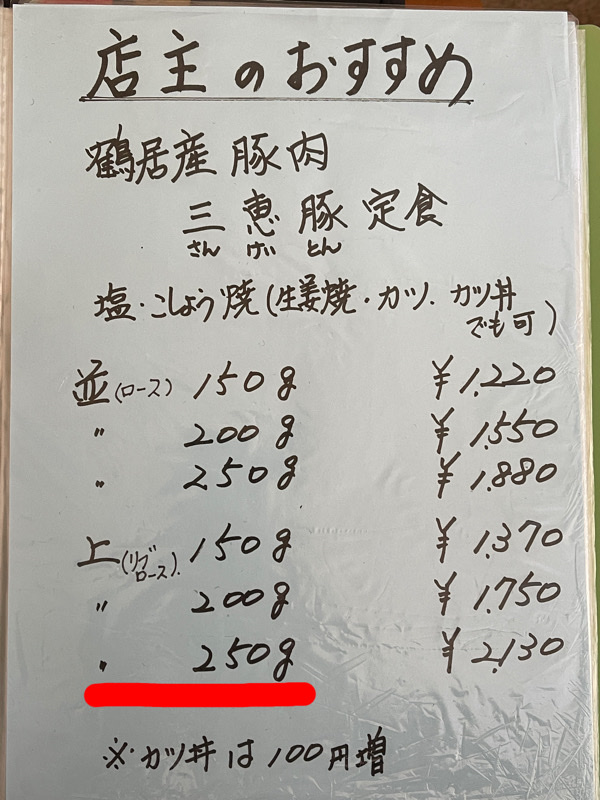 店主のおすすめ
鶴居産豚肉
三恵豚定食
さん けい とん
塩・こしょう焼(生姜焼・カツ、カツ丼
でも可)
並(ロース) 150g ¥1,220
〃 200g ¥1,550
〃 250g ¥1,880
上(リブロース) 150g ¥1,370
〃 200g ¥1,750
〃 250g ¥2,130
※カツ丼は100円増